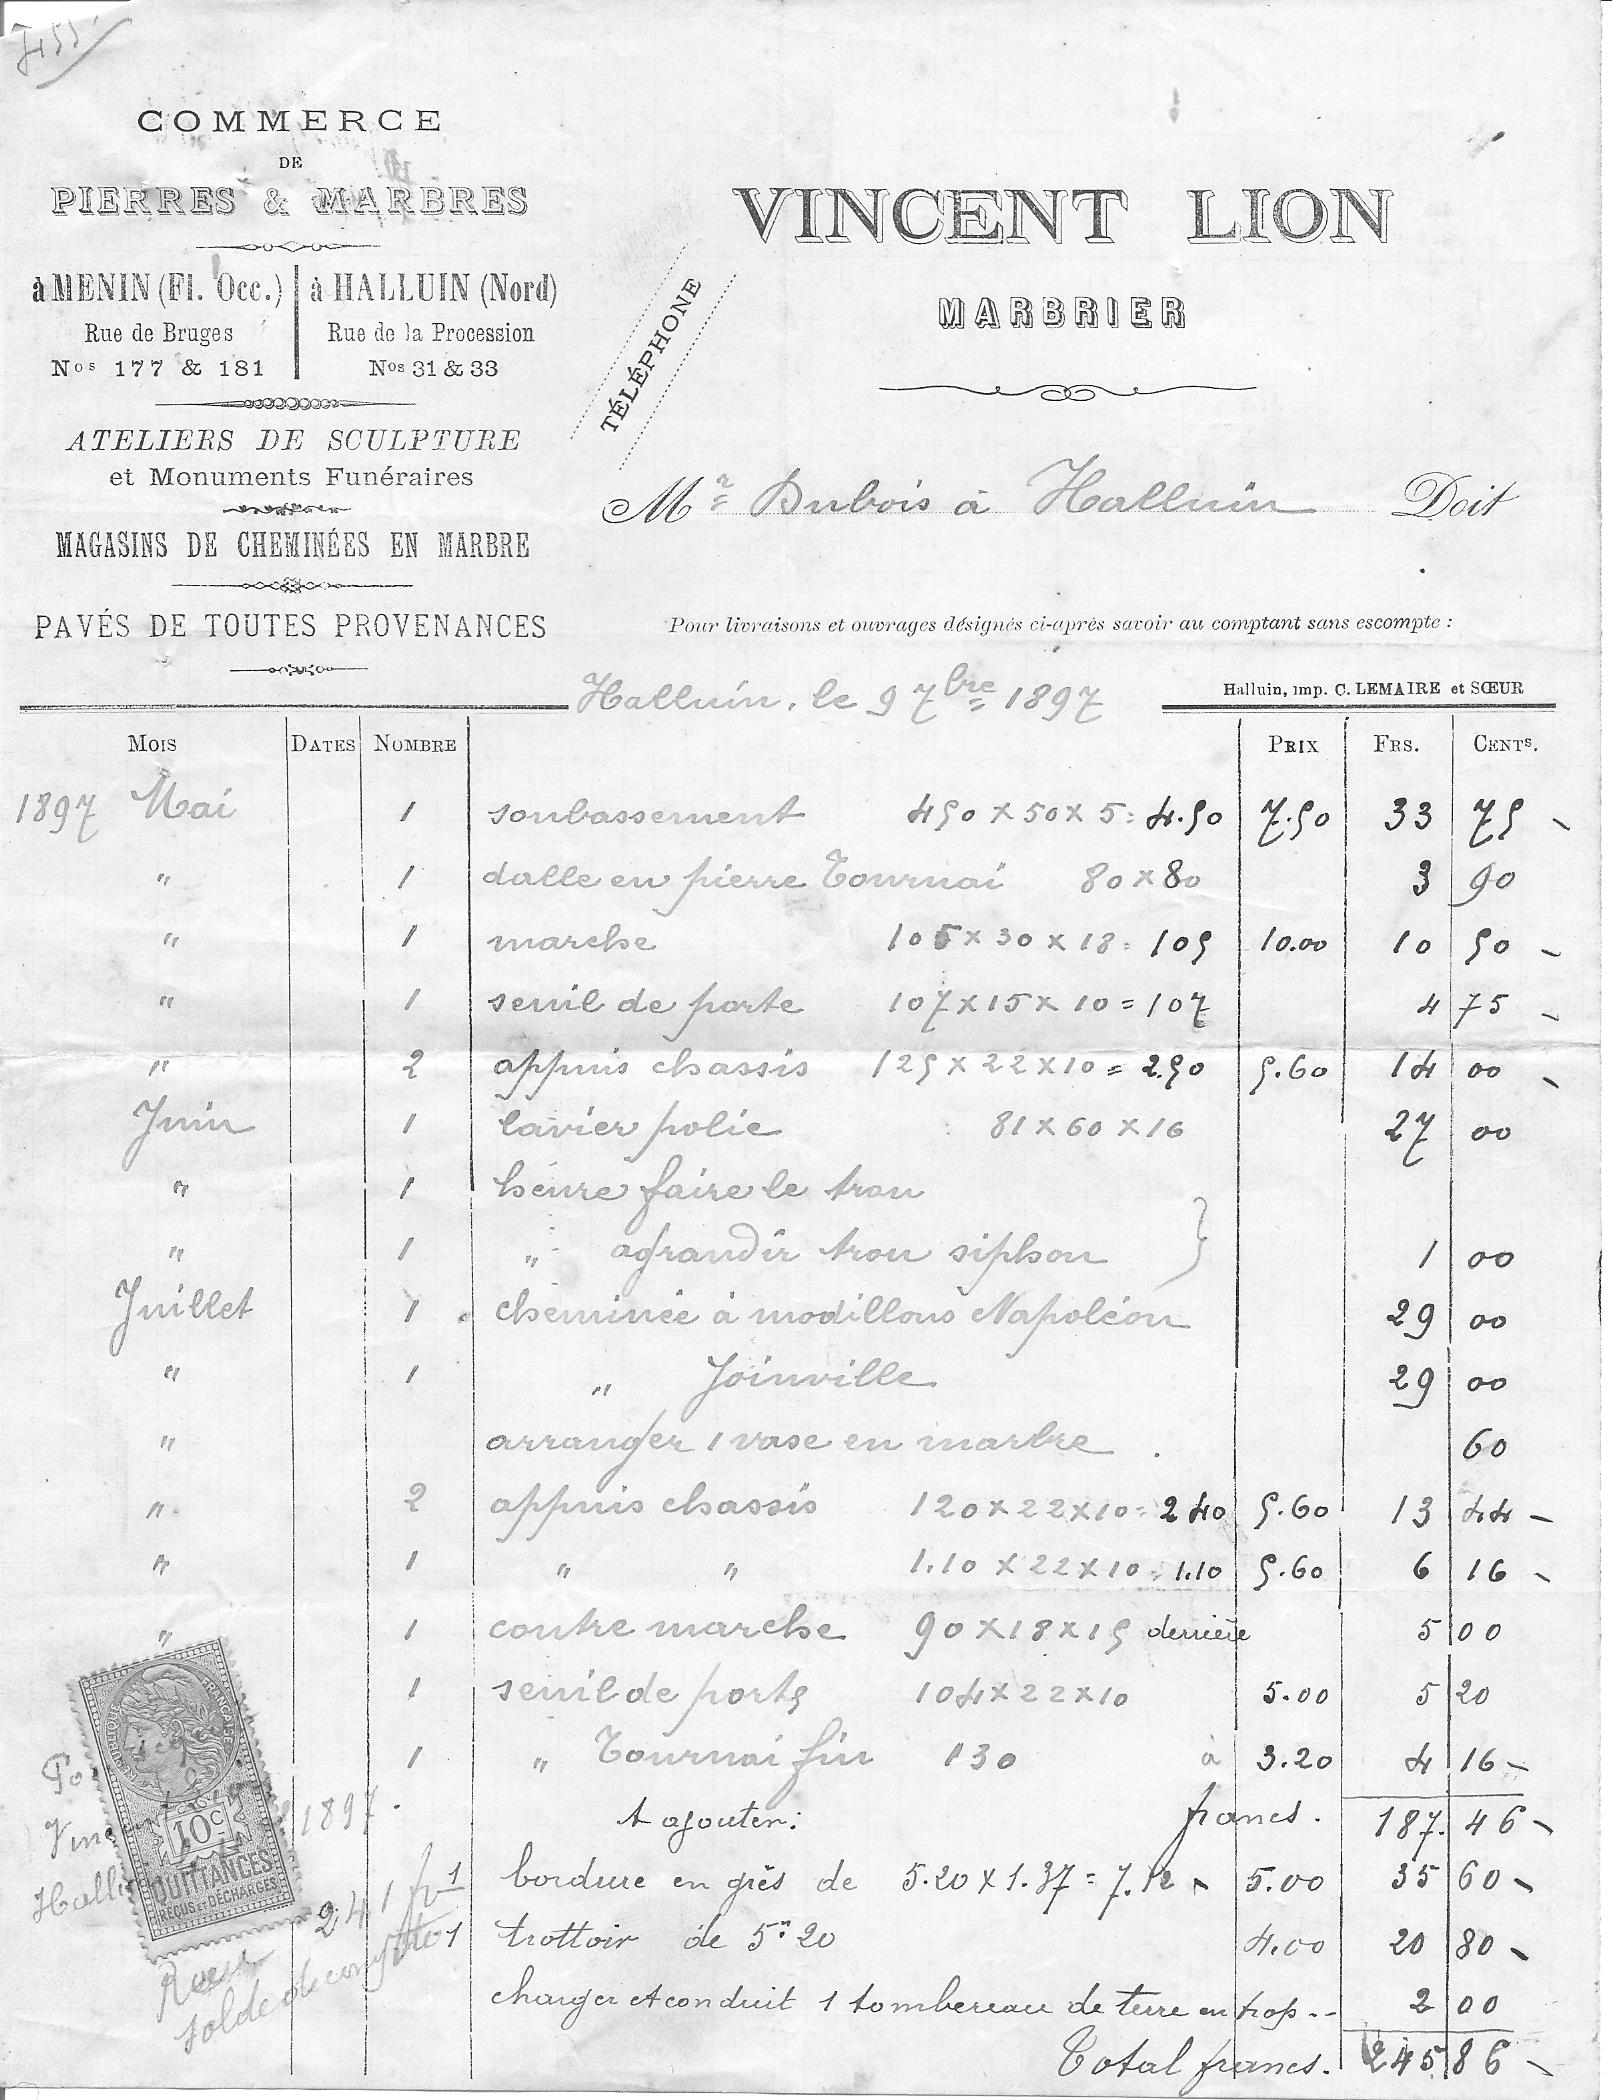 COMMERCE
DE
PIERRES & MARBRES
à MENIN (Fl. Occ.) à HALLUIN (Nord)
Rue de Bruges Rue de la Procession
Nos 177 & 181 Nos 31 & 33
ATELIERS DE SCULPTURE
et Monuments Funéraires
MAGASINS DE CHEMINÉES EN MARBRE
PAVÉS DE TOUTES PROVENANCES
TÉLÉPHONE
VINCENT LION
MARBRIER
Mr Dubois à Halluin Doit
Pour livraisons et ouvrages désignés ci-après savoir au comptant sans escompte :
Halluin, le 9 7bre 1897
Halluin, imp. C. LEMAIRE et SŒUR
MOIS DATES NOMBRE PRIX FRS. CENTS.
1897 Mai 1 soubassement 450 x 50 x 5 = 4.50 7.50 33 75
" 1 dalle en pierre Tournai 80 x 80 3 90
" 1 marche 105 x 30 x 18 = 105 10.00 10 50
" 1 seuil de porte 107 x 15 x 10 = 107 4 75
" 2 appuis chassis 125 x 22 x 10 = 2.50 5.60 14 00
Juin 1 lavier polie 81 x 60 x 16 27 00
" 1 heure faire le trou
" 1 " agrandir trou siphon } 1 00
Juillet 1 cheminée à modillons Napoléon 29 00
" 1 " Joinville 29 00
" arranger 1 vase en marbre 60
" 2 appuis chassis 120 x 22 x 10 = 240 5.60 13 44
" 1 " " 1.10 x 22 x 10 = 1.10 5.60 6 16
" 1 contre marche 90 x 18 x 15 derrière 5 00
1 seuil de porte 104 x 22 x 10 5.00 5 20
1 " Tournai fin 130 à 3.20 4 16
A ajouter: francs. 187. 46
1 bordure en grès de 5.20 x 1.37 = 7.12 5.00 35 60
1 trottoir de 5m 20 4.00 20 80
charger et conduit 1 tombereau de terre en trop -- 2 00
Total francs. 245 86
RÉPUBLIQUE FRANÇAISE
10c
QUITTANCES
REÇUS ET DÉCHARGES
1897.
241 fr
solde de compte